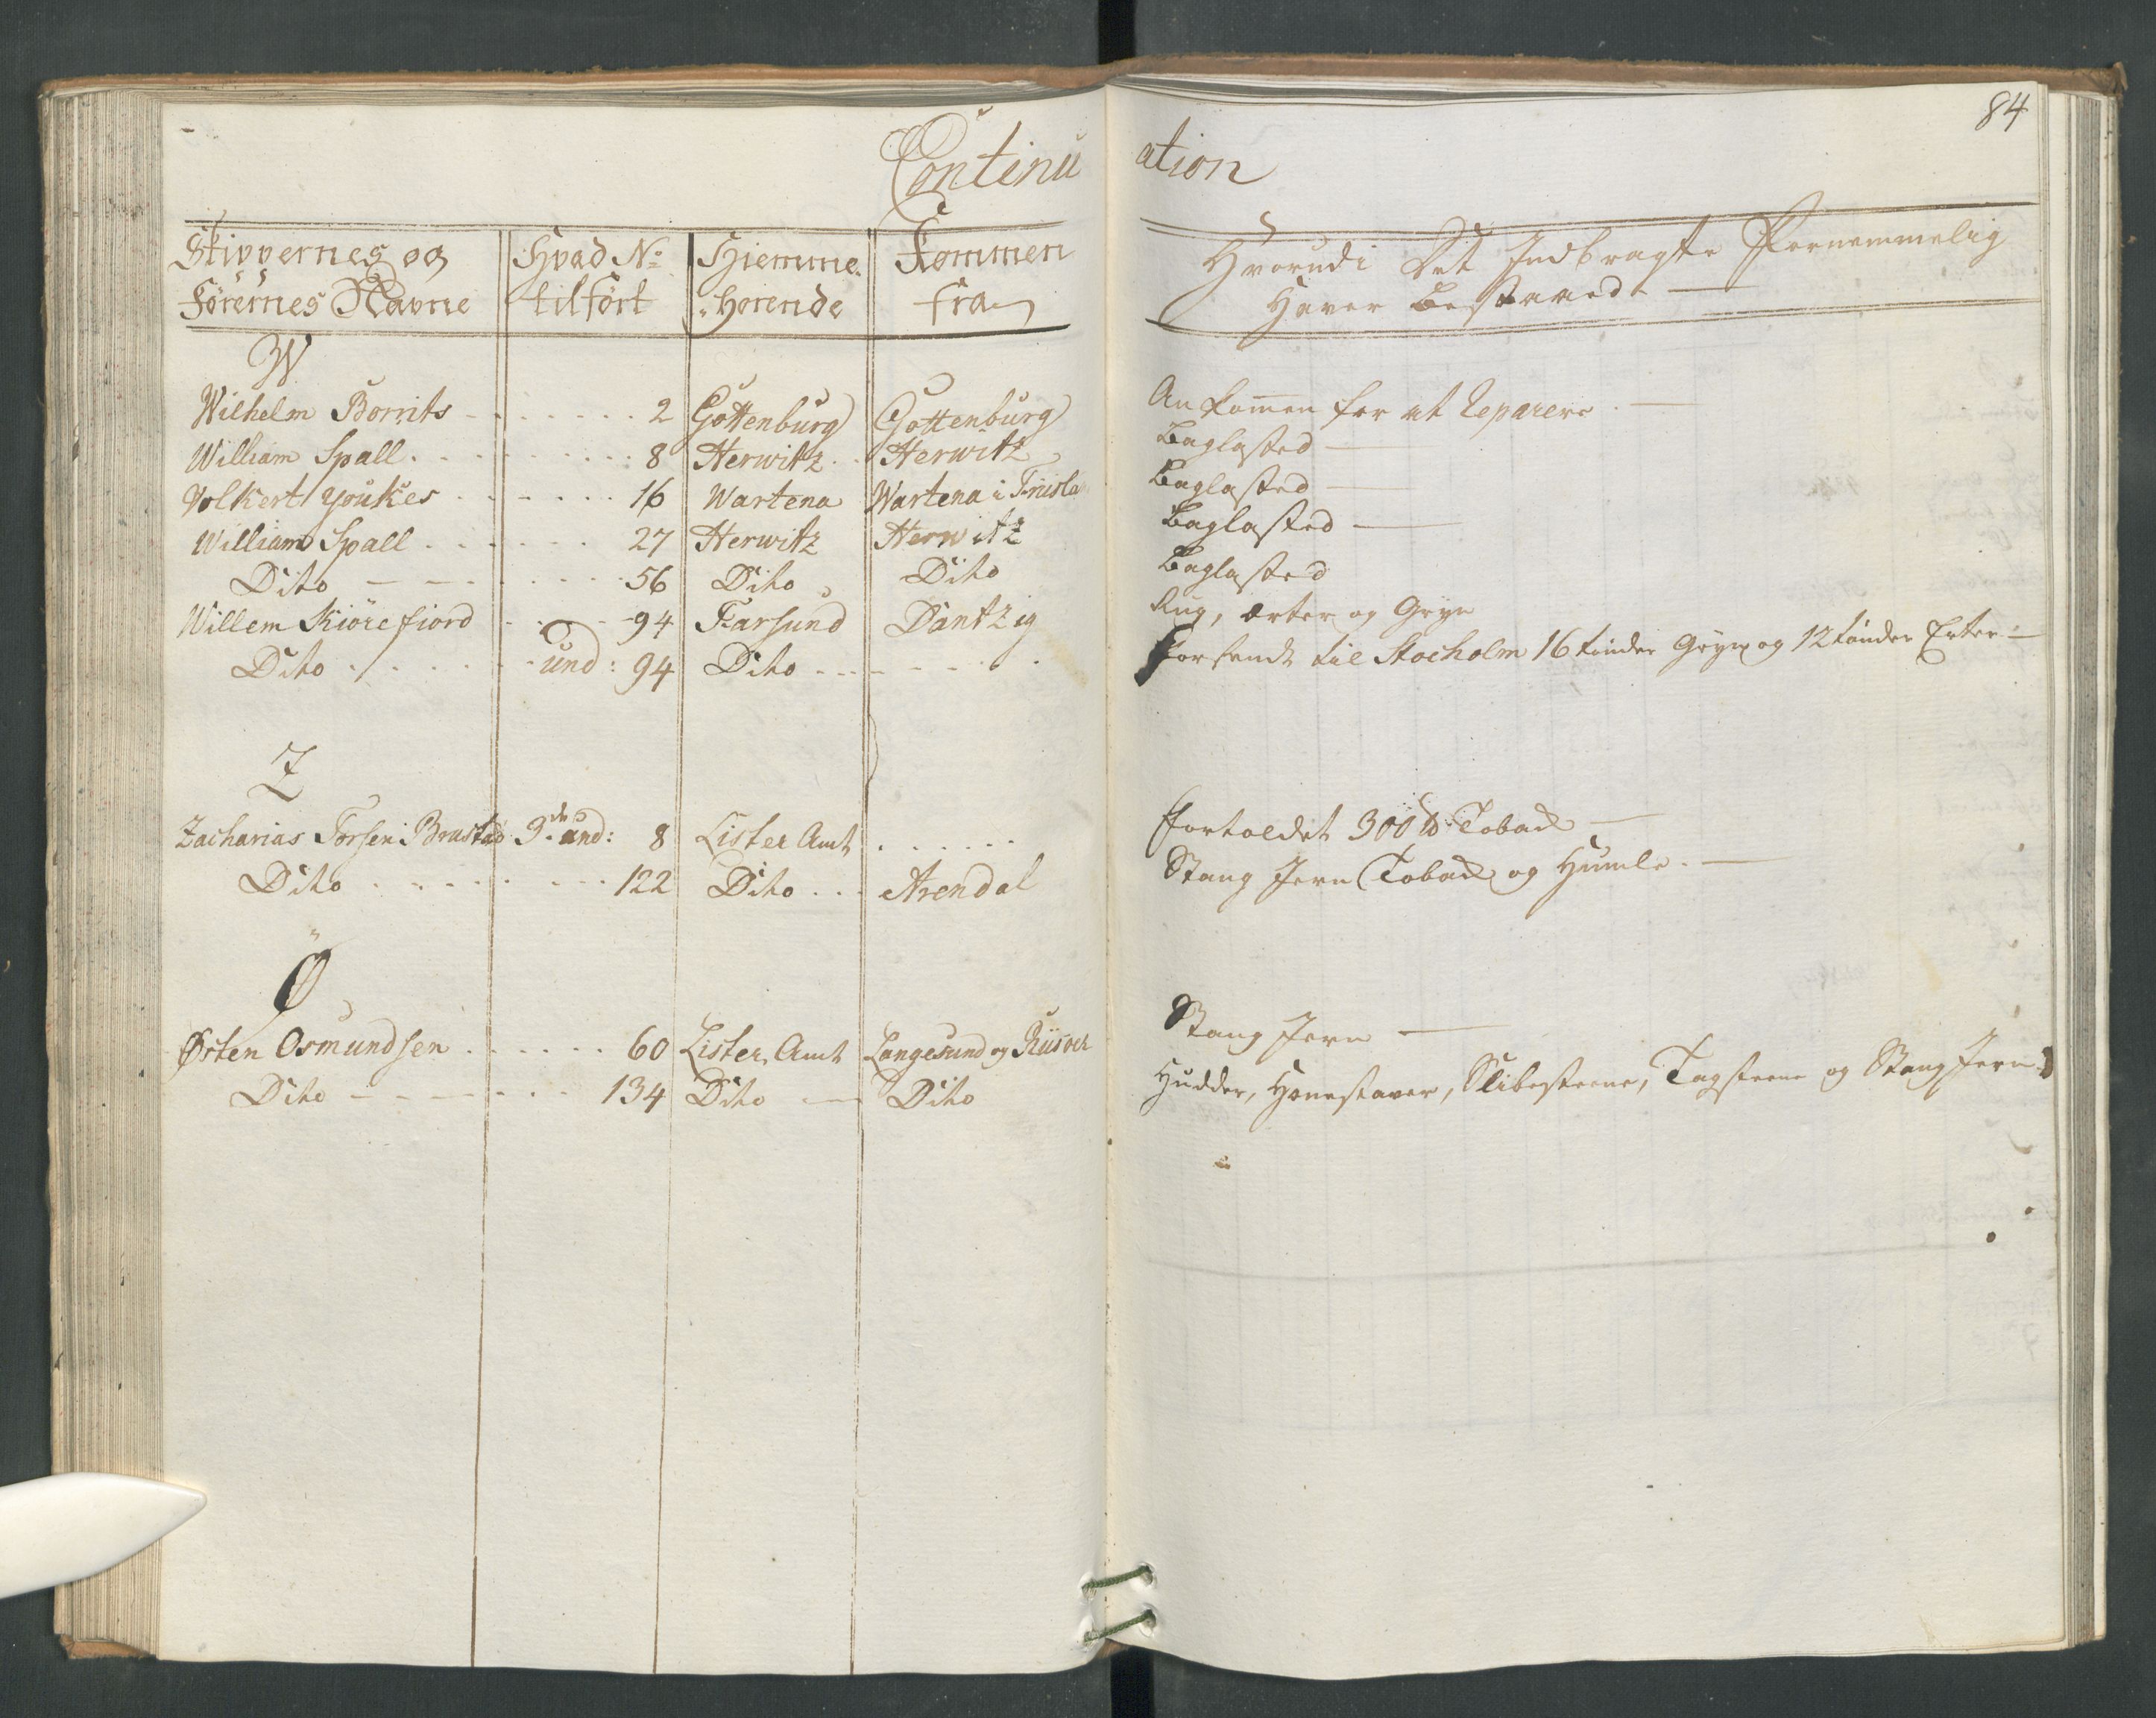 84
Continuation
Skippernes og Hvad No Hiemme- Kommen Hvorudi Det Indbragte Fornemmelig
Förernes Navne tilfört hörende fra Haver Bestaaed
W
Wilhelm Borrits 2 Gottenburg Gottenburg Ankommen for at Reparere
William Spall 8 Herwitz Herwitz Baglasted
Volkert Youkes 16 Wartena Wartena i Friisla Baglasted
William Spall 27 Herwitz Herwitz Baglasted
Dito 56 Dito Dito Baglasted
Willem Kiörefiord 94 Farsund Dantzig Rug, Erter og Gryn
Dito und: 94 Dito Forsendt til Stocholm 16 tönder Gryn og 12 tönder Erter
Z
Zacharias Torsen Brastad 9de und: 8 Lister Amt Fortoldet 300 ℔ Toback
Dito 122 Dito Arendal Stang Jern Toback og Humle
Ø
Østen Osmundsen 60 Lister Amt Langesund og Riisöer Stang Jern
Dito 134 Dito Dito Hudder, Hønestaver, Slibesteene, Tagsteene og Stang Jern